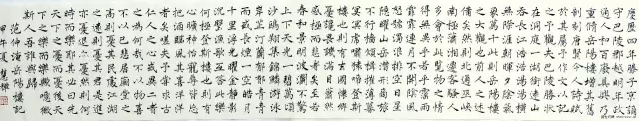 慶曆四年春滕子京謫
守巴陵郡越明年政
通人和百廢具興乃
重修岳陽樓增其舊
制刻唐賢今人詩賦
於其上屬予作文以記
之予觀夫巴陵勝狀
在洞庭一湖銜遠山
吞長江浩浩湯湯橫
無際涯朝暉夕陰氣
象萬千此則岳陽樓
之大觀也前人之述
備矣然則北通巫峽
南極瀟湘遷客騷人
多會於此覽物之情
得無異乎若夫霪雨
霏霏連月不開陰風
怒號濁浪排空日星
隱曜山岳潛形商旅
不行檣傾楫摧薄暮
冥冥虎嘯猿啼登斯
樓也則有去國懷鄉
憂讒畏譏滿目蕭然
感極而悲者矣至若
春和景明波瀾不驚
上下天光一碧萬頃
沙鷗翔集錦鱗游泳
岸芷汀蘭郁郁青青
而或長煙一空皓月
千里浮光躍金靜影
沉璧漁歌互答此樂
何極登斯樓也則有
心曠神怡寵辱偕忘
把酒臨風其喜洋洋
者矣嗟夫予嘗求古
仁人之心或異二者
之為何哉不以物喜
不以己悲居廟堂之
高則憂其民處江湖
之遠則憂其君是進
亦憂退亦憂然則何
時而樂耶其必曰先
天下之憂而憂後天
下之樂而樂歟噫微
斯人吾誰與歸
范仲淹岳陽樓記
甲午夏